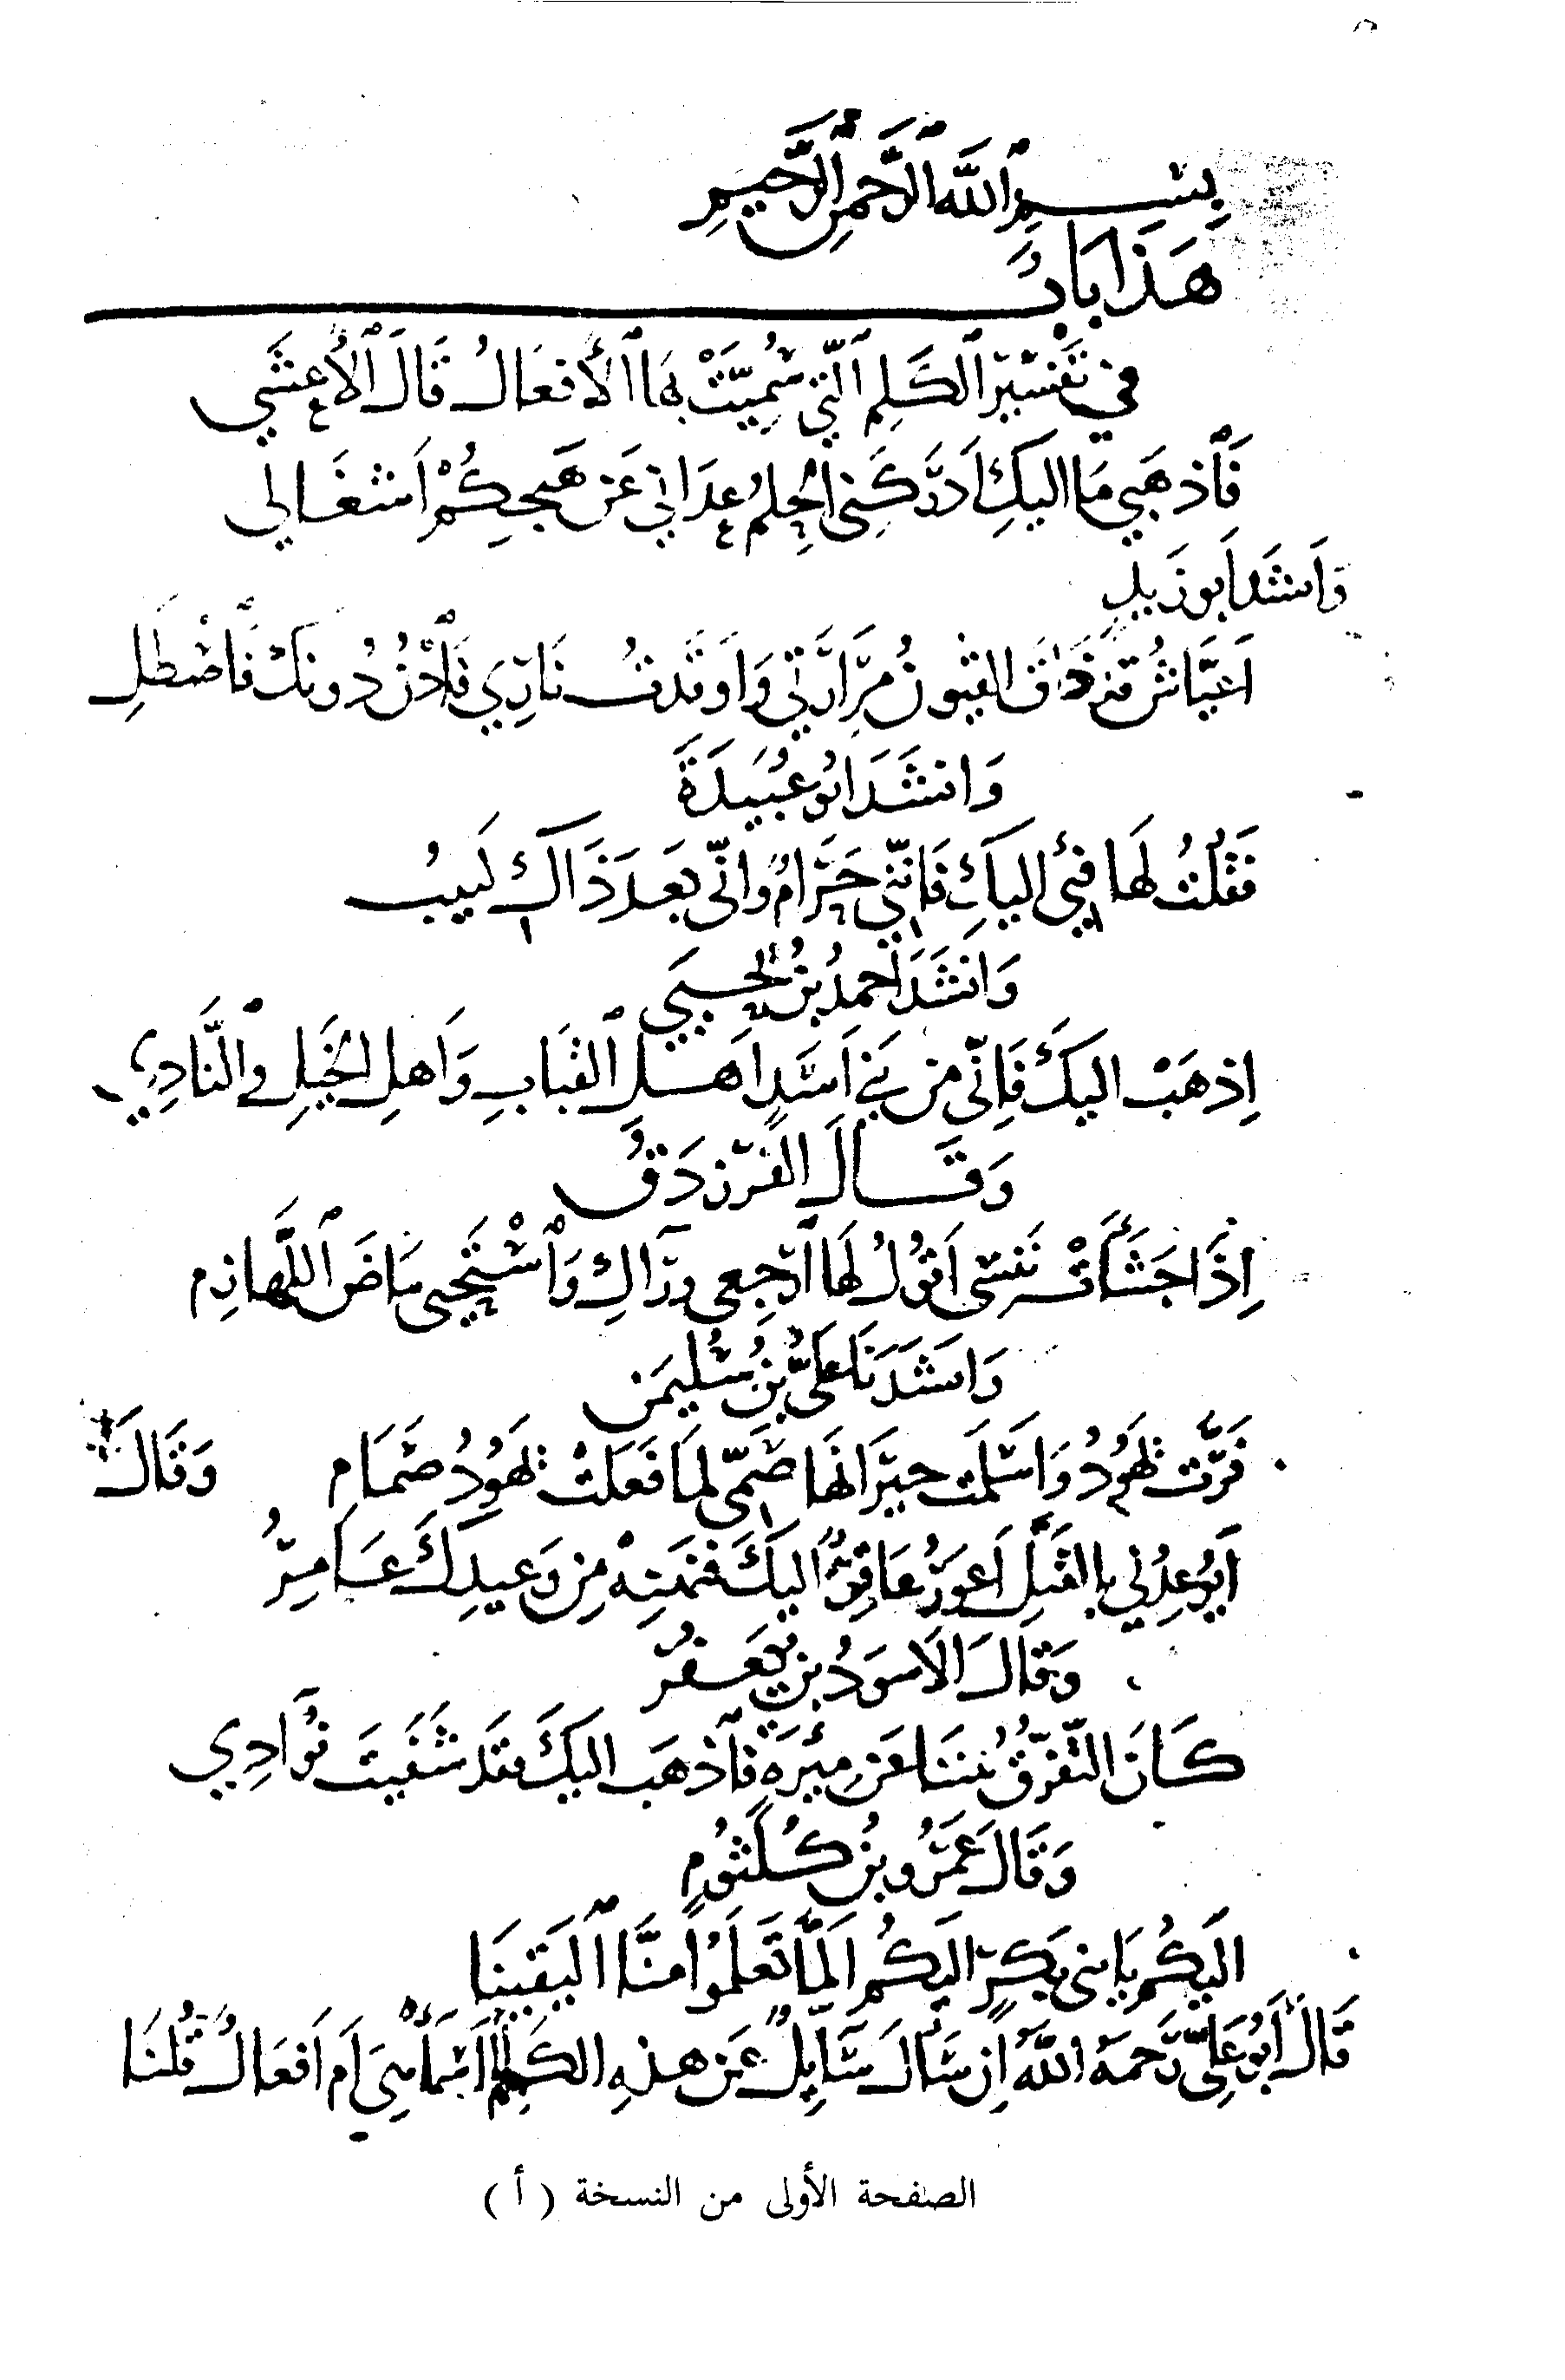 بِسْمِ ٱللَّهِ ٱلرَّحْمَنِ ٱلرَّحِيمِ
هَذَا بَابُ
في تَفْسِيرِ ٱلكَلِمِ ٱلَّتِي سُمِّيَتْ بِهَا ٱلأَفْعَالُ قَالَ ٱلْأَعْشَى
فَٱذْهَبِي مَا اليكِ أَدْرَكَنِي الحِلمُ عَدَانِي عَن هَيجِكُمْ اَشغَالِي
وَأنشَدَ أبو زَيدٍ
اَعَيَّاشُ قَد ذَاقَ القُيُونُ مَرَارَتي وَاَوقَدتُ نَارِي فَٱدْنُ دُونَكَ فَٱصْطَلِ
وَانشَدَ ابُو عُبَيدَةَ
فَقُلتُ لَهَا فِيْ اليكِ فَإنَّنِي حَرَامٌ وَإنّي بَعدَ ذَاكَ لَبيبُ
وَانشَدَ أَحمَدُ بنُ يَحيَى
اِذهَبْ اليكَ فَإنِّي مِن بَنِي اَسَدٍ اَهلِ ٱلقِبَابِ وَاَهلِ الخَيلِ وَٱلنَّادِي
وَقَالَ الفَرَزدَقُ
اِذَا جَشَأَتْ نَفسِي اَقُولُ لَهَا ٱرجِعِي وَرَآكِ وَٱسْتَحْيِي بَيَاضَ ٱللَّهَازِم
وَانشَدَنَا عَلِيُّ بنُ سُلَيمَن
فَرَّت يَهُودُ وَاَسلَمَت جيرَانَهَا صَمِّي لِمَا فَعَلَتْ يَهُودُ صَمَامِ وَقَالَ
اَيُوعِدُنِي بالقَتلِ اَعوَرُ عَاقِرٌ اليكَ فَنَهْنِهْ مِن وَعيدِكَ عَامِرُ
وَقَالَ الاَسوَدُ بنُ يَعفُرُ
كَانَ التَّفَرُّقُ بَينَنَا عَن مِئرَةٍ فَٱذهَب اليكَ فقَد شَفَيتَ فُوَادِي
وَقَالَ عَمرُو بنُ كُلثُومٍ
اليكُم يَا بَنِي بَكرٍ اليكُم اَلَمَّا تَعلَمُوا مِنَّا ٱليَقينَا
قَالَ أَبُو عَلِيٍّ رَحمَهُ اللَّهُ اِن سَأَلَ سَآئِلٌ عَن هذِهِ الكَلِمِ أَأَسمَآءٌ هِيَ اَم اَفعَالٌ قُلنَا
الصفحة الأولى من النسخة ( أ )